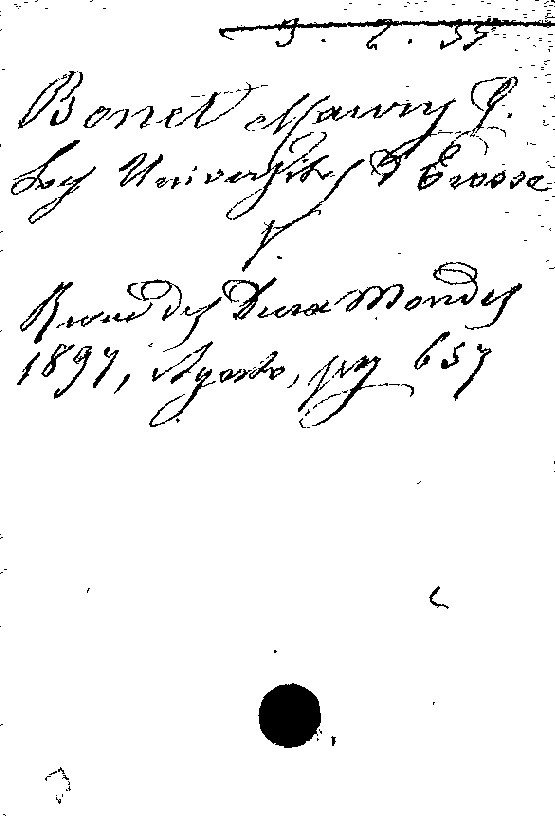 3. 2. 55
Bonet Maury G.
Les Universités d'Ecosse
V.
Revue des Deux Mondes
1897, Agosto, pag 657